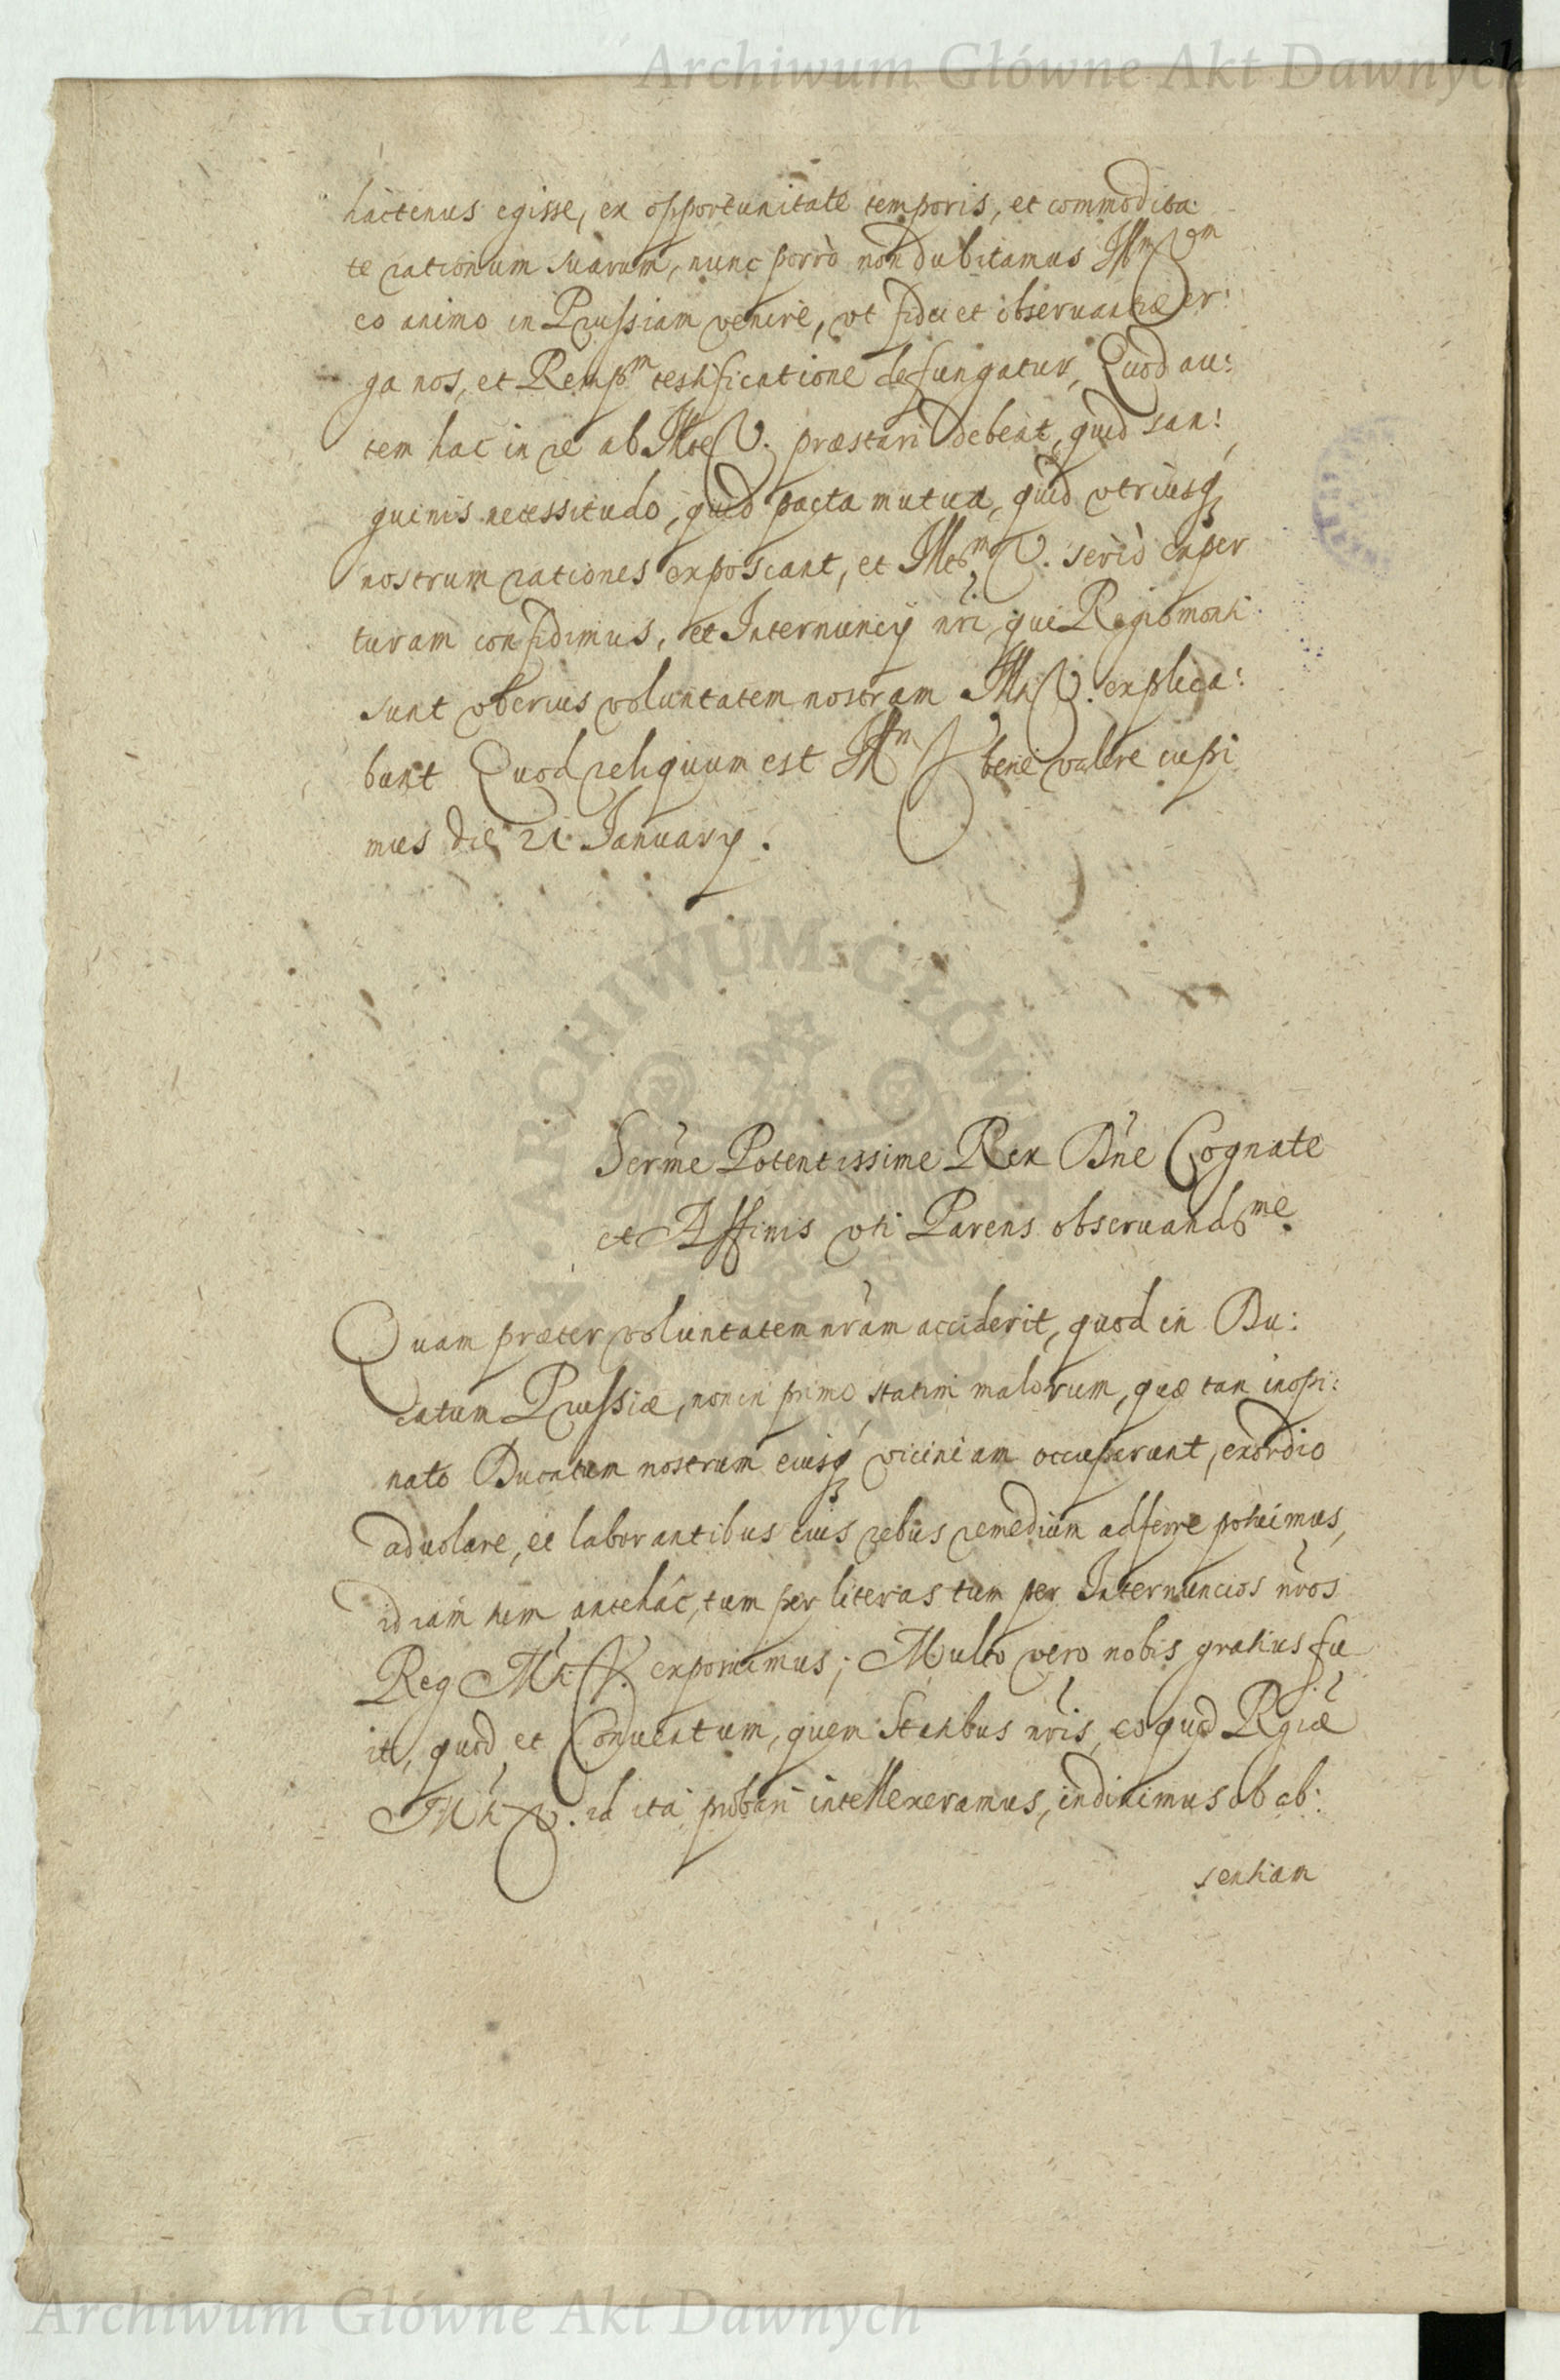 Archiwum Główne Akt Dawnych
hactenus egisse, ex opportunitate temporis, et commodita:
te rationum suarum, nunc porrò non dubitamus Ill^m V^m
eo animo in Prussiam venire, vt fidei et obseruantiæ er:
ga nos, et Remp^m testificatione defungatur, Quod au:
tem hac in re ab Ilte V. præstari debeat, quid san:
guinis necessitudo, quid pacta mutua, quid vtriusq
nostrum rationes exposcant, et V. seriò exper
turam confidimus, et Internuncy nri, qui Regiomonti
sunt vberius voluntatem nostram V. explica:
bunt Quod reliquum est bene valere cupi
mus die 21 January.
ARCHIWUM GŁÓWNE
Serme Potentissime Rex Dne Cognate
et Affinis vti Parens obseruand^me.
Quam præter voluntatem nram acciderit, quod in Du:
catum Prussiæ, non in primo statim malorum, quæ tan inopi:
nato Ducatum nostrum eiusq viciniam occuparunt, exordio
aduolare, et laborantibus eius rebus remedium adferre potuimus,
id iam num antehâc, tum per literas tum per Internuncios nros
Reg Mti V. exposuimus; Multo vero nobis gratius fu
it, quod et Conuentum, quem Statibus nris, eo quod Rgiæ
Mti V. id ita probari intellexeramus, indiximus ob ab:
sentiam
Archiwum Główne Akt Dawnych